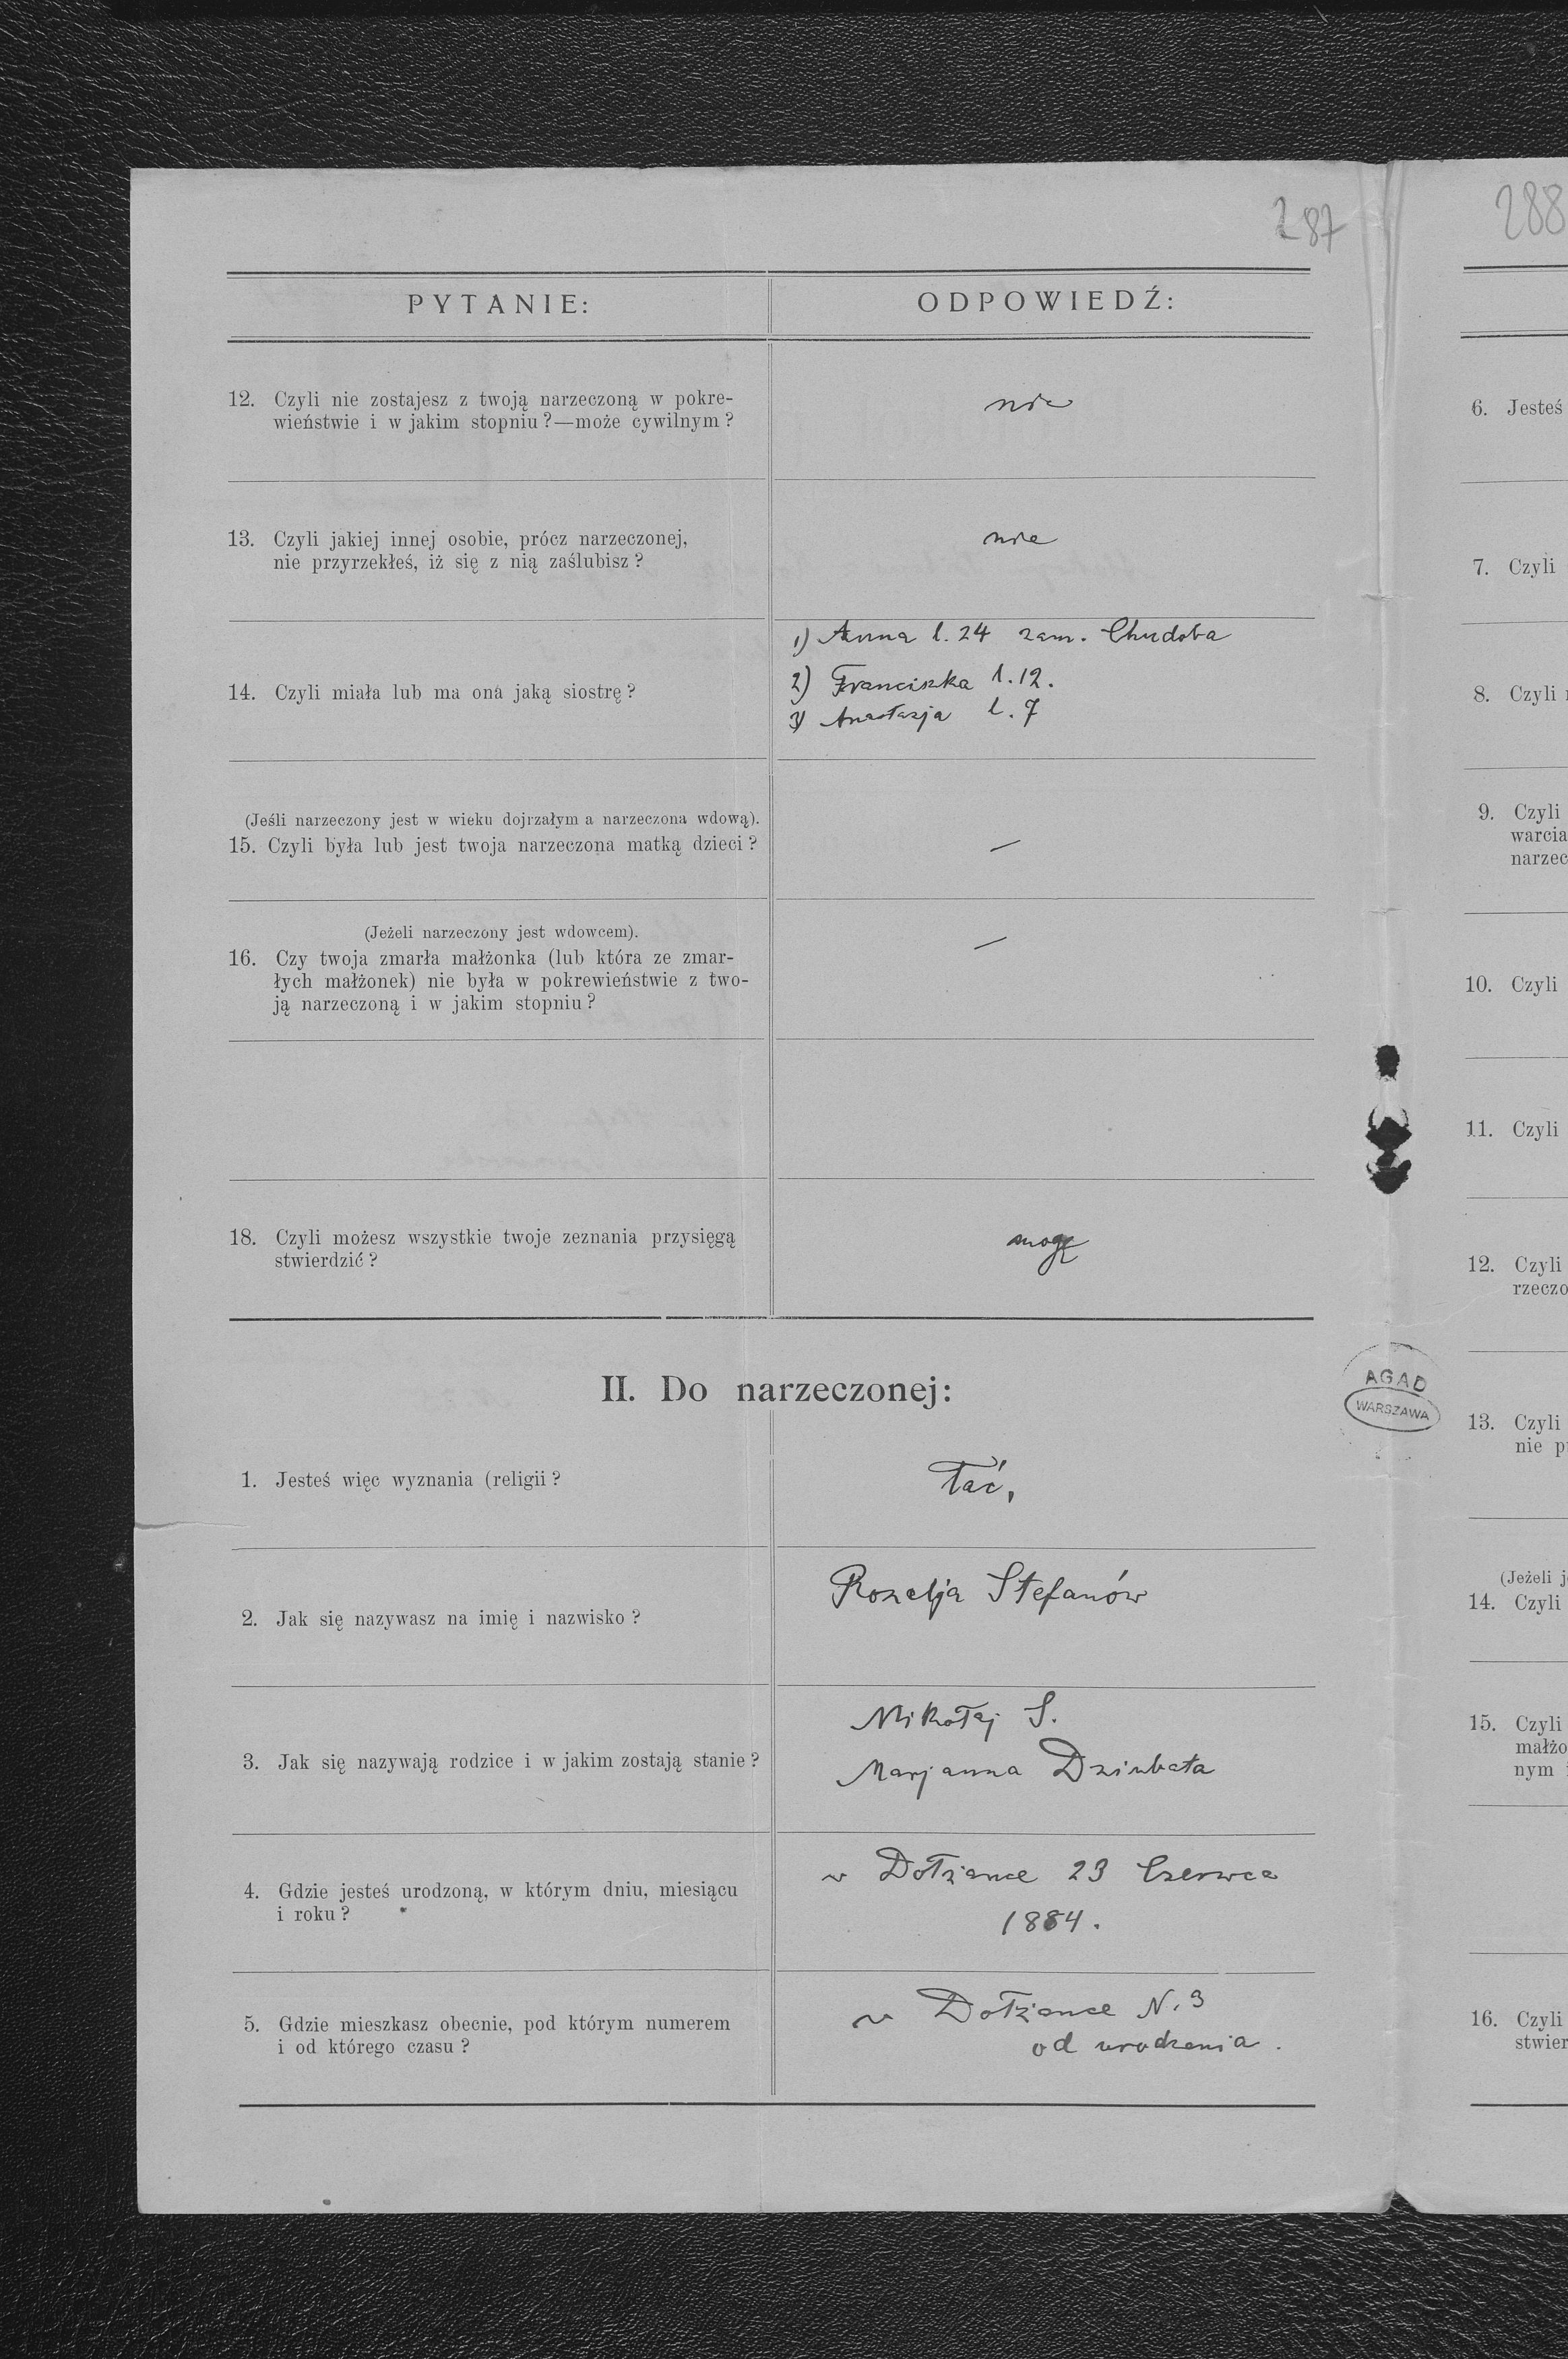 287
PYTANIE:
ODPOWIEDŹ:
12. Czyli nie zostajesz z twoją narzeczoną w pokre-
wieństwie i w jakim stopniu?—może cywilnym?
nie
13. Czyli jakiej innej osobie, prócz narzeczonej,
nie przyrzekłeś, iż się z nią zaślubisz?
nie
14. Czyli miała lub ma ona jaką siostrę?
1) Anna l. 24 zam. Chudoba
2) Franciszka l. 12.
3) Anastazja l. 7
(Jeśli narzeczony jest w wieku dojrzałym a narzeczona wdową).
15. Czyli była lub jest twoja narzeczona matką dzieci?
—
(Jeżeli narzeczony jest wdowcem).
16. Czy twoja zmarła małżonka (lub która ze zmar-
łych małżonek) nie była w pokrewieństwie z two-
ją narzeczoną i w jakim stopniu?
—
18. Czyli możesz wszystkie twoje zeznania przysięgą
stwierdzić?
mogę
II. Do narzeczonej:
1. Jesteś więc wyznania (religii?
łać,
2. Jak się nazywasz na imię i nazwisko?
Rozalja Stefanów
3. Jak się nazywają rodzice i w jakim zostają stanie?
Mikołaj S.
Marjanna Dziubata
4. Gdzie jesteś urodzoną, w którym dniu, miesiącu
i roku?
w Dołżance 23 Czerwca
1884.
5. Gdzie mieszkasz obecnie, pod którym numerem
i od którego czasu?
w Dołżance N. 3
od urodzenia.
AGAD
WARSZAWA
288
6. Jesteś
7. Czyli
8. Czyli
9. Czyli
warcia
narzec
10. Czyli
11. Czyli
12. Czyli
rzeczo
13. Czyli
nie p
(Jeżeli j
14. Czyli
15. Czyli
małżo
nym
16. Czyli
stwier